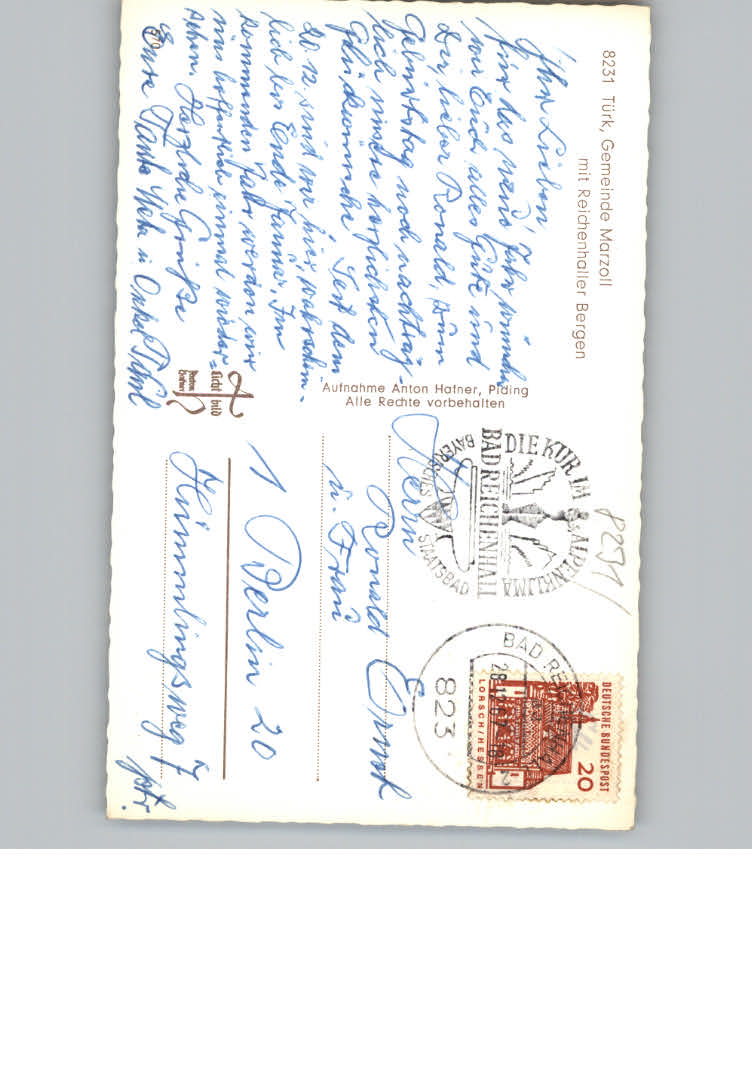 8231 Türk, Gemeinde Marzoll
mit Reichenhaller Bergen
Ihr Lieben,
für das neue Jahr wünschen
wir Euch alles Gute und
Dir, lieber Ronald, zum
Geburtstag noch nachträg-
lich unsere herzlichsten
Glückwünsche. Seit dem
20.12. sind wir hier, wahrschein-
lich bis Ende Januar. Im
kommenden Jahr werden wir
uns hoffentlich einmal wieder-
sehen. Herzliche Grüße
Eure Tante und Onkel
670
Aufnahme Anton Hafner, Piding
Alle Rechte vorbehalten
Licht bild
Anton
Hafner
DIE KUR IM
ALPENKLIMA
BAD REICHENHALL
BAYERISCHES
STAATSBAD
8231
BAD REICHENHALL
28.12.67
823
DEUTSCHE BUNDESPOST
20
LORSCH/HESSEN
Herrn
Ronald
u. Frau
1 Berlin 20
Himmlingsweg 7